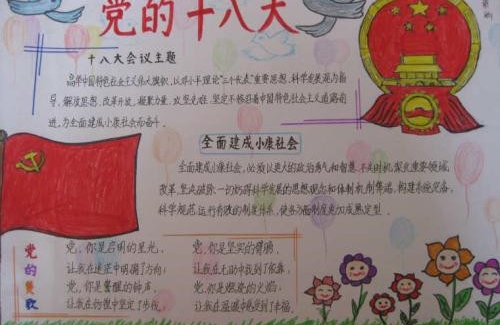 党的十八大
十八大会议主题
高举中国特色社会主义伟大旗帜，以邓小平理论"三个代表"重要思想，科学发展观为指
导，解放思想，改革开放，凝聚力量，攻坚克难，坚定不移沿着中国特色社会主义道路前
进，为全面建成小康社会而奋斗。
全面建成小康社会
全面建成小康社会，必须以更大的政治勇气和智慧，不失时机深化重要领域，
改革，坚决破除一切妨碍科学发展的思想观念和体制机制弊端，构建系统完备，
科学规范，运行有效的制度体系，使各方面制度更加成熟定型。
党的赞歌
党，你是启明的星光，
让我在迷茫中明确了方向；
党，你是警醒的钟声，
让我在彷徨中坚定了步伐；
党，你是坚实的臂膀，
让我在无助中找到了依靠；
党，你是燃烧的火焰，
让我在温暖中感受到了幸福。